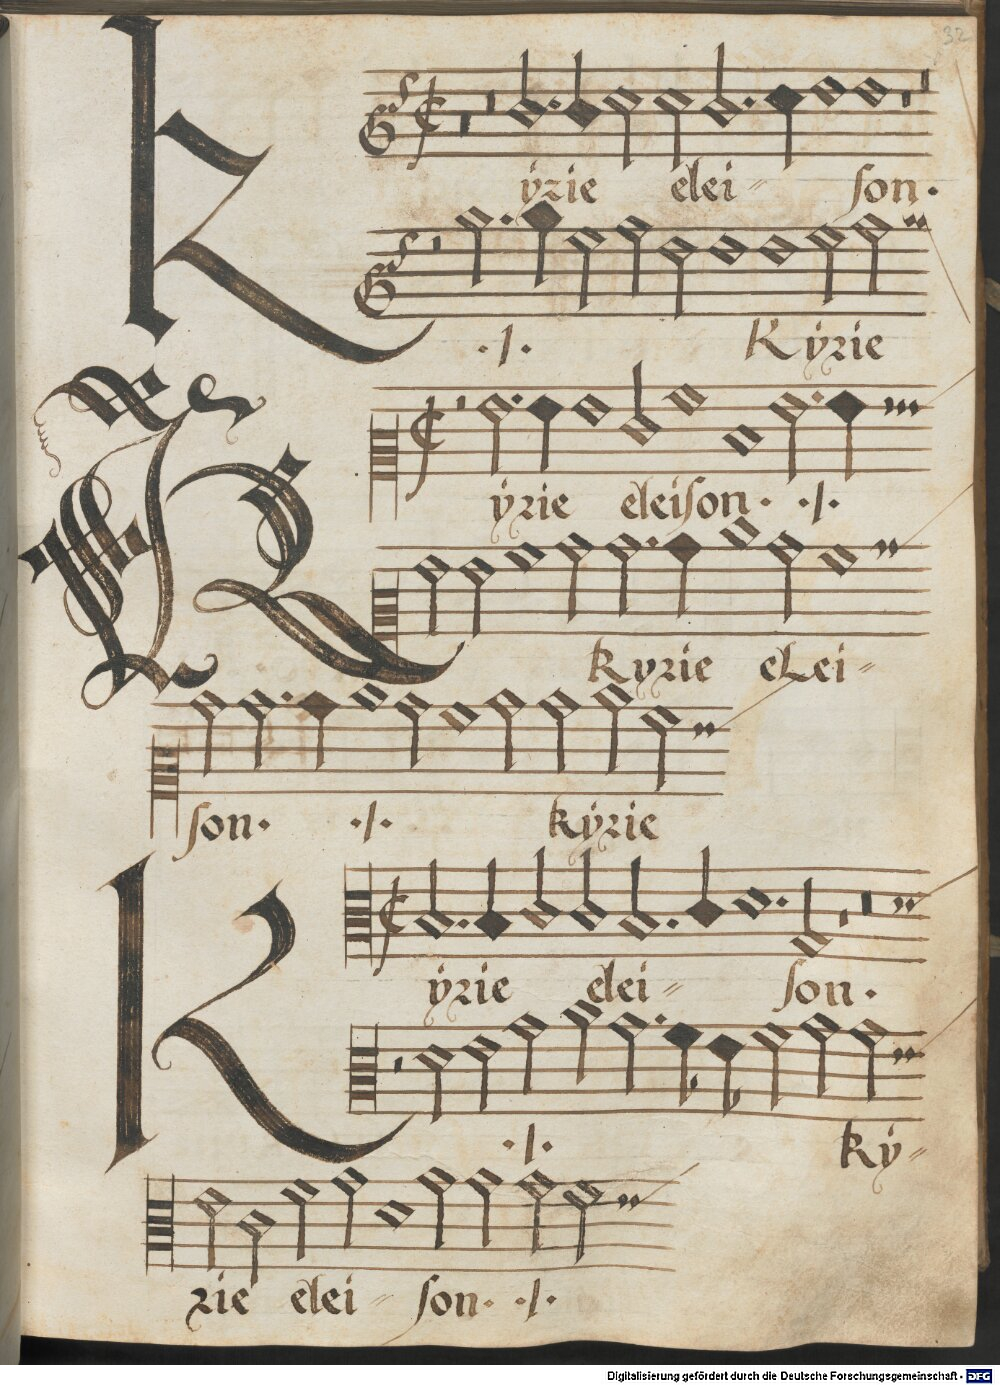 32
Kÿrie elei= son.
./. Kÿrie
Kÿrie eleison. ./.
kyrie eLei=
son. ./. kÿrie
Kÿrie elei= son.
./. kÿ=
rie elei= son. ./.
Digitalisierung gefördert durch die Deutsche Forschungsgemeinschaft - DFG